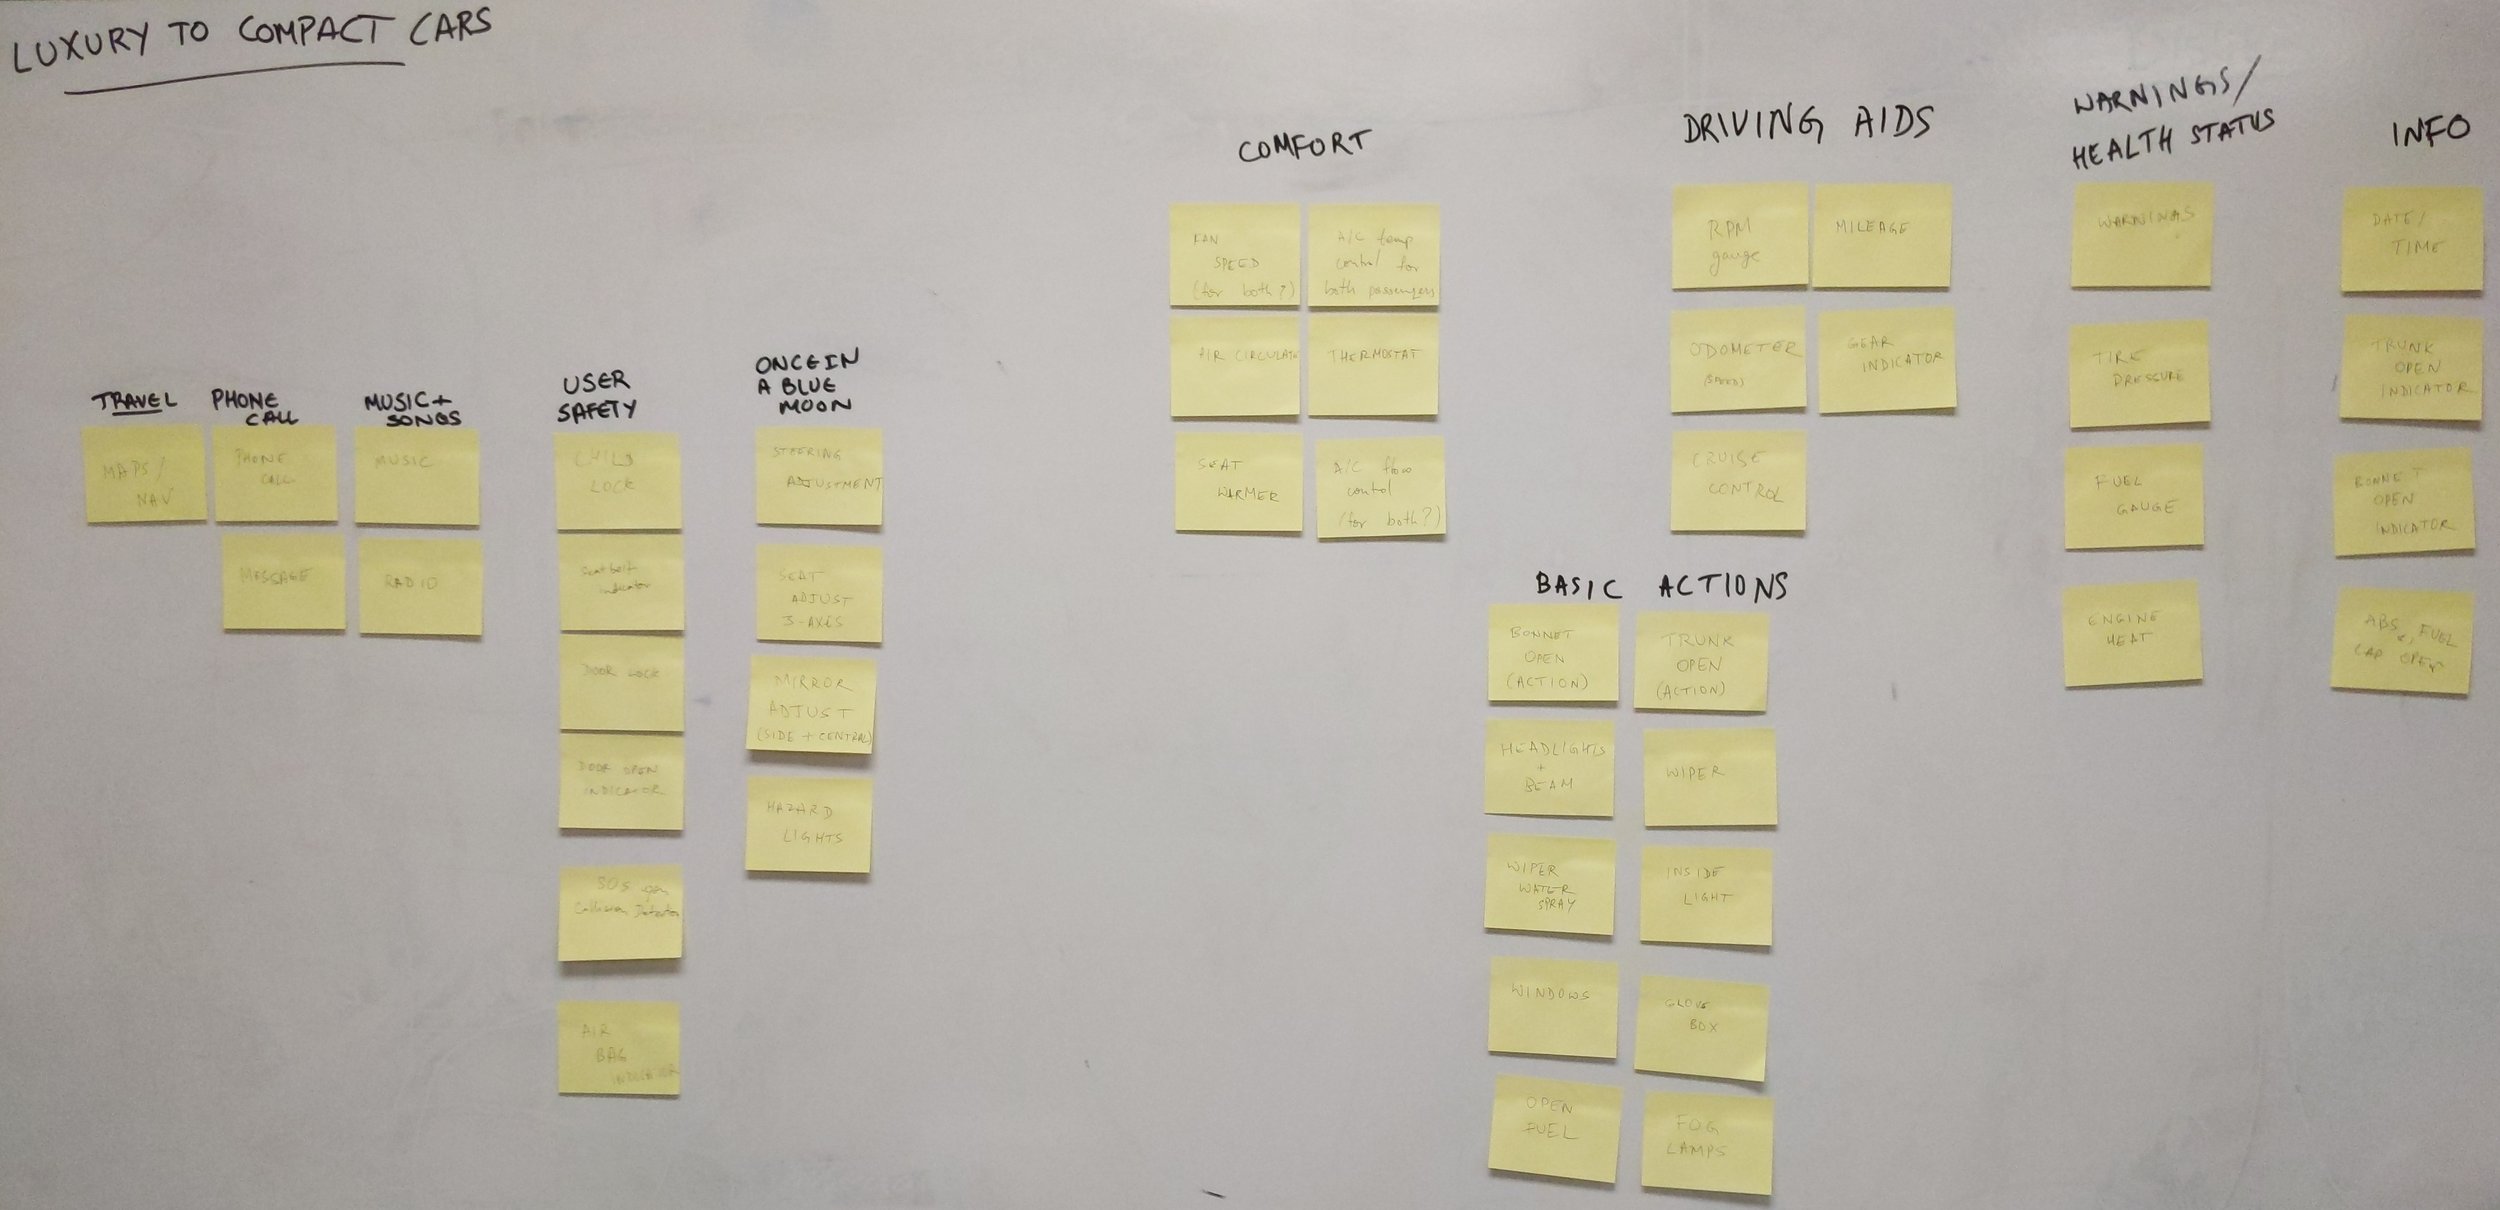 LUXURY TO COMPACT CARS
TRAVEL
MAPS/
NAV
PHONE
CALL
PHONE
CALL
MESSAGE
MUSIC +
SONGS
MUSIC
RADIO
USER
SAFETY
CHILD
LOCK
Seatbelt
indicator
DOOR LOCK
DOOR OPEN
INDICATOR
SOS
Collision Detector
AIR
BAG
INDICATOR
ONCE IN
A BLUE
MOON
STEERING
ADJUSTMENT
SEAT
ADJUST
3-AXES
MIRROR
ADJUST
(SIDE + CENTRAL)
HAZARD
LIGHTS
COMFORT
FAN
SPEED
(for both?)
A/C temp
control for
both passengers
AIR CIRCULATE
THERMOSTAT
SEAT
WARMER
A/C flow
control
(for both?)
DRIVING AIDS
RPM
gauge
MILEAGE
ODOMETER
(SPEED)
GEAR
INDICATOR
CRUISE
CONTROL
BASIC ACTIONS
BONNET
OPEN
(ACTION)
TRUNK
OPEN
(ACTION)
HEADLIGHTS
+
BEAM
WIPER
WIPER
WATER
SPRAY
INSIDE
LIGHT
WINDOWS
GLOVE
BOX
OPEN
FUEL
FOG
LAMPS
WARNINGS/
HEALTH STATUS
WARNINGS
TIRE
PRESSURE
FUEL
GAUGE
ENGINE
HEAT
INFO
DATE/
TIME
TRUNK
OPEN
INDICATOR
BONNET
OPEN
INDICATOR
ABS, FUEL
CAP OPEN